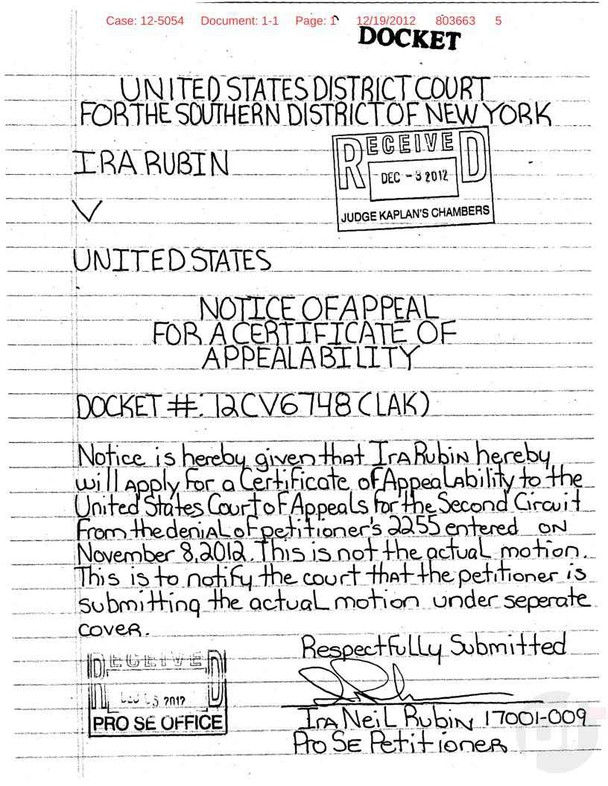 Case: 12-5054 Document: 1-1 Page: 1 12/19/2012 803663 5
DOCKET
UNITED STATES DISTRICT COURT
FOR THE SOUTHERN DISTRICT OF NEW YORK
IRA RUBIN
RECEIVED
DEC - 3 2012
JUDGE KAPLAN'S CHAMBERS
V
UNITED STATES
NOTICE OF APPEAL
FOR A CERTIFICATE OF
APPEALABILITY
DOCKET #: 12CV6748 (LAK)
Notice is hereby given that Ira Rubin hereby
will Apply For a Certificate of Appealability to the
United States Court of Appeals for the Second Circuit
From the denial of petitioner's 2255 entered on
November 8, 2012. This is not the actual motion.
This is to notify the court that the petitioner is
submitting the actual motion under seperate
cover.
Respectfully Submitted
RECEIVED
2012
PRO SE OFFICE
Ira Neil Rubin 17001-009
Pro Se Petitioner